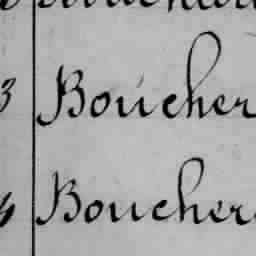 3 Boucher
4 Boucher